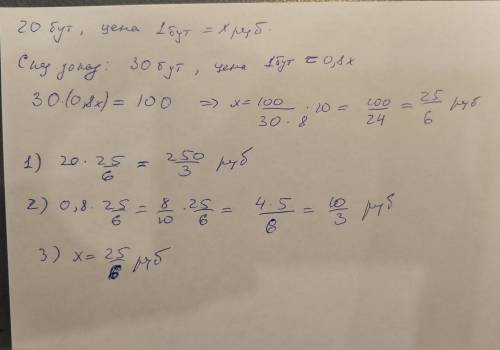 20 бут, цена 1бут = x руб.
След. заход: 30 бут, цена 1бут = 0,8x
30·(0,8x) = 100 => x = 100/30·8 · 10 = 100/24 = 25/6 руб
1) 20 · 25/6 = 250/3 руб
2) 0,8 · 25/6 = 8/10 · 25/6 = 4·5/6 = 10/3 руб
3) x = 25/6 руб